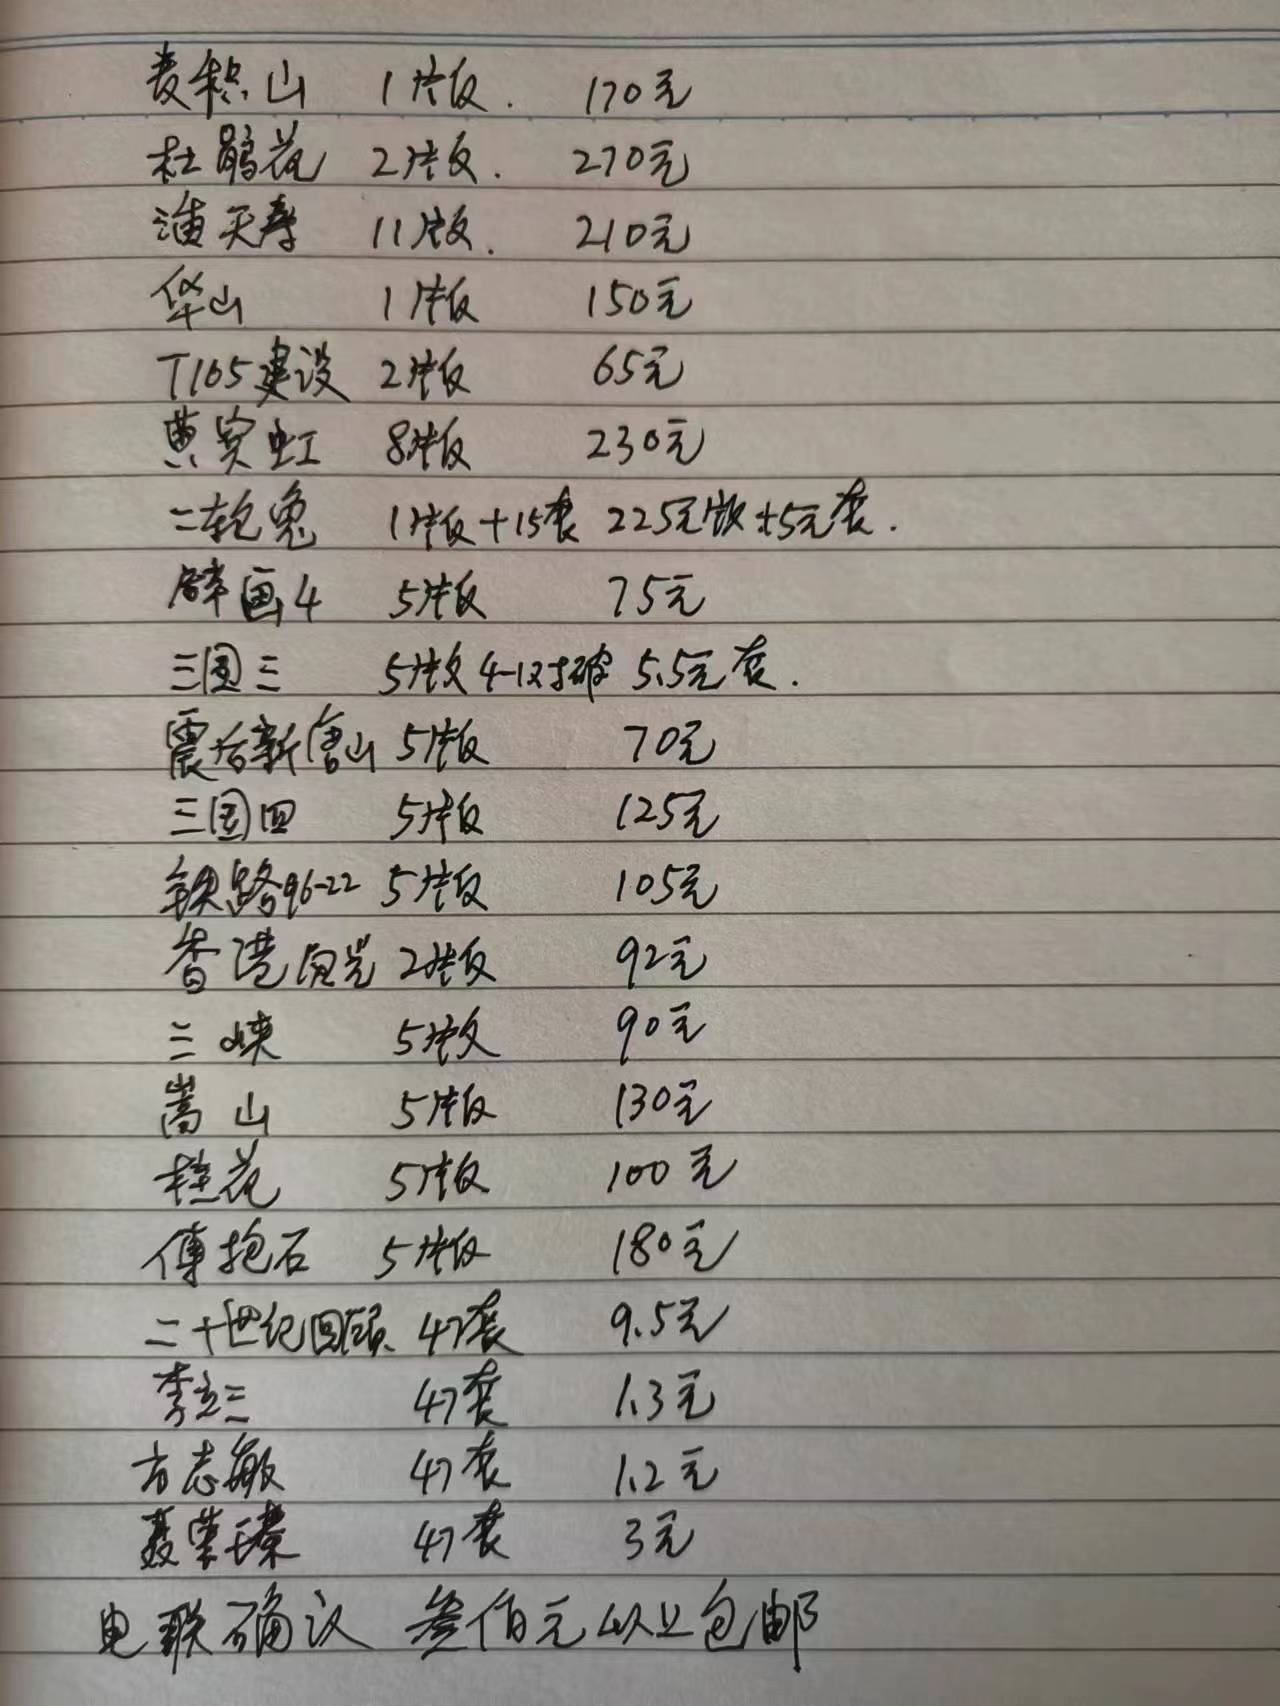 麦积山 1版. 170元
杜鹃花 2版. 270元
潘天寿 11版. 210元
华山 1版 150元
T165建设 2版 65元
黄宾虹 8版 230元
二轮兔 1版+15套 225元版+5元套.
壁画4 5版 75元
三国三 5版4-1对破 5.5元套.
震后新唐山 5版 70元
三国四 5版 125元
铁路96-22 5版 105元
香港风光 2版 92元
三峡 5版 90元
嵩山 5版 130元
桂花 5版 100元
傅抱石 5版 180元
二十世纪回顾 47套 9.5元
李立三 47套 1.3元
方志敏 47套 1.2元
聂荣臻 47套 3元
电联确认 叁佰元以上包邮